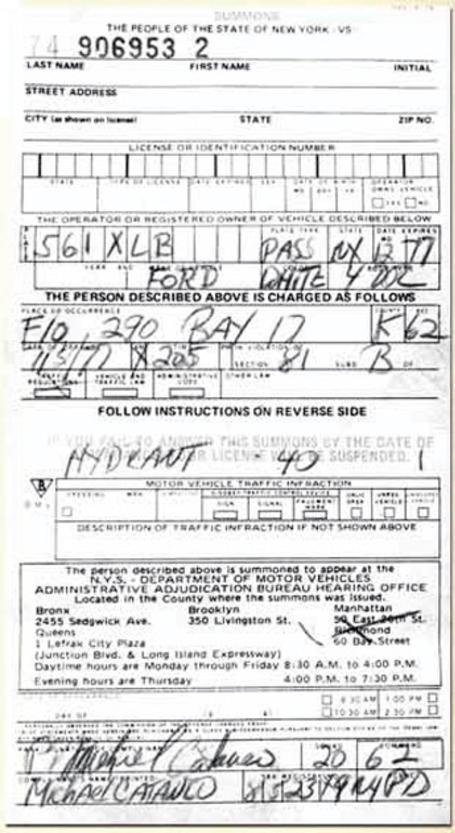 SUMMONS
THE PEOPLE OF THE STATE OF NEW YORK VS
74 906953 2
LAST NAME FIRST NAME INITIAL
STREET ADDRESS
CITY (as shown on license) STATE ZIP NO.
LICENSE OR IDENTIFICATION NUMBER
STATE TYPE OF LICENSE DATE EXPIRES SEX DATE OF BIRTH OPERATOR
MO DAY YR OWNS VEHICLE
YES NO
THE OPERATOR OR REGISTERED OWNER OF VEHICLE DESCRIBED BELOW
PLATE TYPE STATE DATE EXPIRES
561 XLB PASS NY 12 77
FORD WHITE 4
THE PERSON DESCRIBED ABOVE IS CHARGED AS FOLLOWS
PLACE OF OCCURRENCE COUNTY PCT
F/O 290 BAY 17 K 62
IN VIOLATION OF
SECTION 81 SUBD B OF
TRAFFIC REGULATIONS VEHICLE AND TRAFFIC LAW ADMINISTRATIVE CODE OTHER LAW
FOLLOW INSTRUCTIONS ON REVERSE SIDE
IF YOU FAIL TO ANSWER THIS SUMMONS BY THE DATE OF
YOUR LICENSE WILL BE SUSPENDED.
HYDRANT 40 1
B
MOTOR VEHICLE TRAFFIC INFRACTION
SPEEDING MPH DISOBEY TRAFFIC CONTROL DEVICE
SIGN SIGNAL PAVEMENT MARK
DESCRIPTION OF TRAFFIC INFRACTION IF NOT SHOWN ABOVE
The person described above is summoned to appear at the
N.Y.S. - DEPARTMENT OF MOTOR VEHICLES
ADMINISTRATIVE ADJUDICATION BUREAU HEARING OFFICE
Located in the County where the summons was issued.
Bronx Brooklyn Manhattan
2455 Sedgwick Ave. 350 Livingston St. 50 East 26th St.
Queens Richmond
1 Lefrak City Plaza 60 Bay Street
(Junction Blvd. & Long Island Expressway)
Daytime hours are Monday through Friday 8:30 A.M. to 4:00 P.M.
Evening hours are Thursday 4:00 P.M. to 7:30 P.M.
8:30 AM 1:00 PM
DAY OF 19 AT 10:30 AM 2:30 PM
Michael Cataneo 20 62
Michael CATANEO NYPD